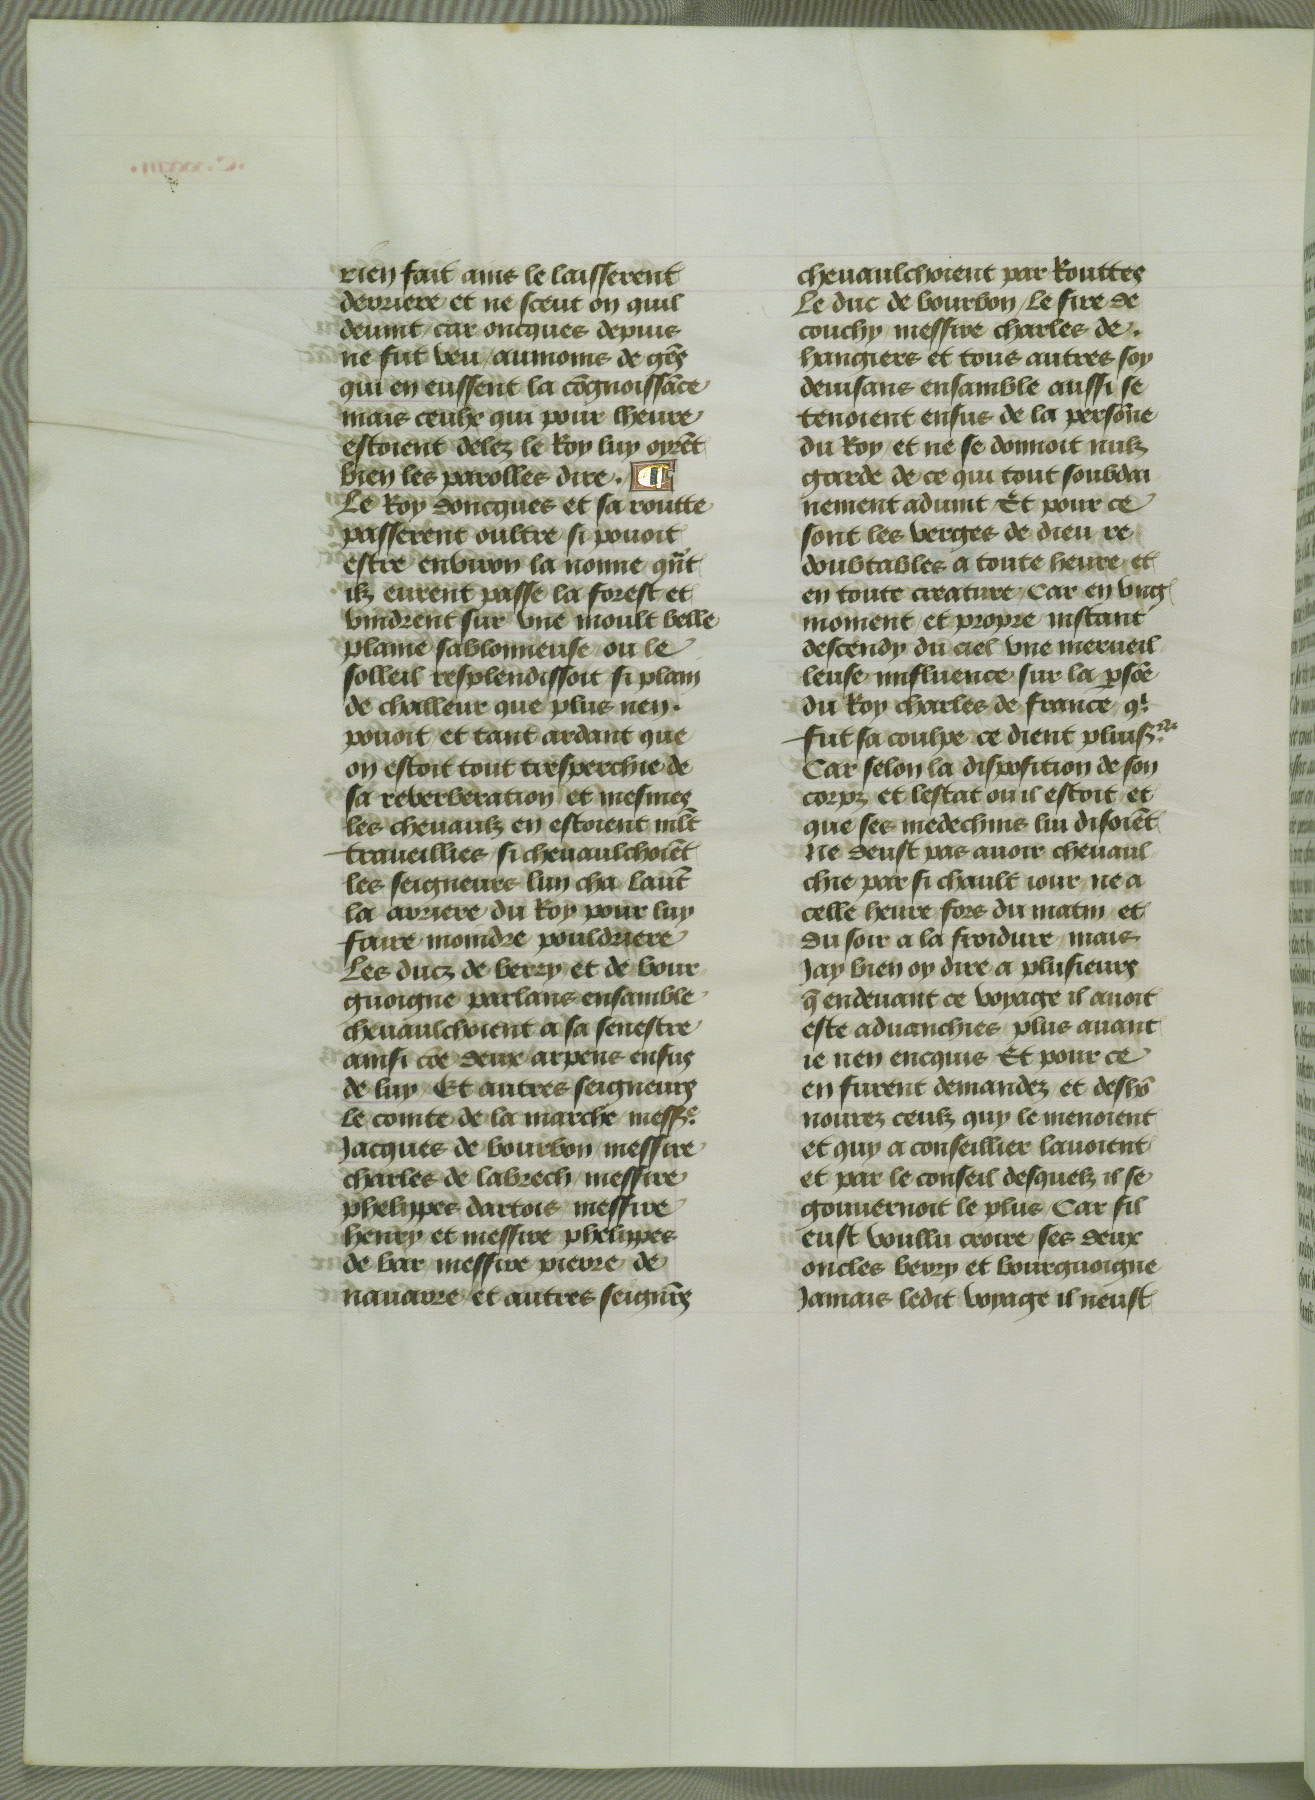 rien fait ains le laisserent
derriere et ne sceut on quil
deuint / car oncques depuis
ne fut veu / aumoins de gēs
qui en eussent la cōgnoissāce
mais ceulx qui pour lheure
estoient delez le Roy luy oyrēt
bien les parolles dire .
Le Roy doncques et sa routte
passerent oultre si pouoit
estre enuiron la nonne qn̄t
ilz eurent passe la forest et
vindrent sur vne moult belle
plaine sablonneuse / ou le
solleil resplendissoit si plain
de challeur que plus nen .
pouoit / et tant ardant que
on estoit tout tresperchie de
sa reverberation / et mesmes
les cheuaulz en estoient mlt̄
traueillies / si cheuaulchoiēt
les seigneurs lun cha lautr̄
la arriere du Roy pour luy
faire moindre pouldriere
Les ducz de berry et de bour
guoigne parlans ensamble
cheuaulchoient a sa senestre
ainsi cōe deux arpens ensus
de luy / Et autres seigneurs
le comte de la marche mess.ᵉ
Jacques de bourbon / messire
charles de labrech / messire
phelippes dartois / messire
henry et messire phelippes
de bar messire pierre de
nauarre / et autres seignr̄s
cheuaulchoient par Routtes
Le duc de bourbon / Le sire de
couchy / messire charles de .
hangiers et tous autres soy
deuisans ensamble aussi se
tenoient ensus de la persōne
du Roy / et ne se donnoit nulz
garde de ce qui tout soubdai
nement aduint / Et pour ce
sont les verges de dieu re
doubtables a toute heure / et
en toute creature / Car en vng
moment et propre instant
descendy du ciel vne merueil
leuse influence sur la ꝑsōe
du Roy charles de france / qⁱ
fut sa coulpe ce dient pluisʳˢ
Car selon la disposition de son
corpz et lestat ou il estoit / et
que ses medechins lui disoiēt
Ne deust pas auoir cheuaul
chie par si chault iour / ne a
celle heure / fors du matin / et
du soir a la froidure / mais
Jay bien oy dire a plusieurs
q̄ endeuant ce voyage il auoit
este aduanchies / plus auant
ie nen encquis / Et pour ce
en furent demandez et deshō
nourez ceulz quy le menoient
et quy a conseillier lauoient
et par le conseil desquelz il se
gouuernoit le plus / Car sil
eust voullu croire ses deux
oncles berry et bourguoigne
Jamais ledit voyage il neust